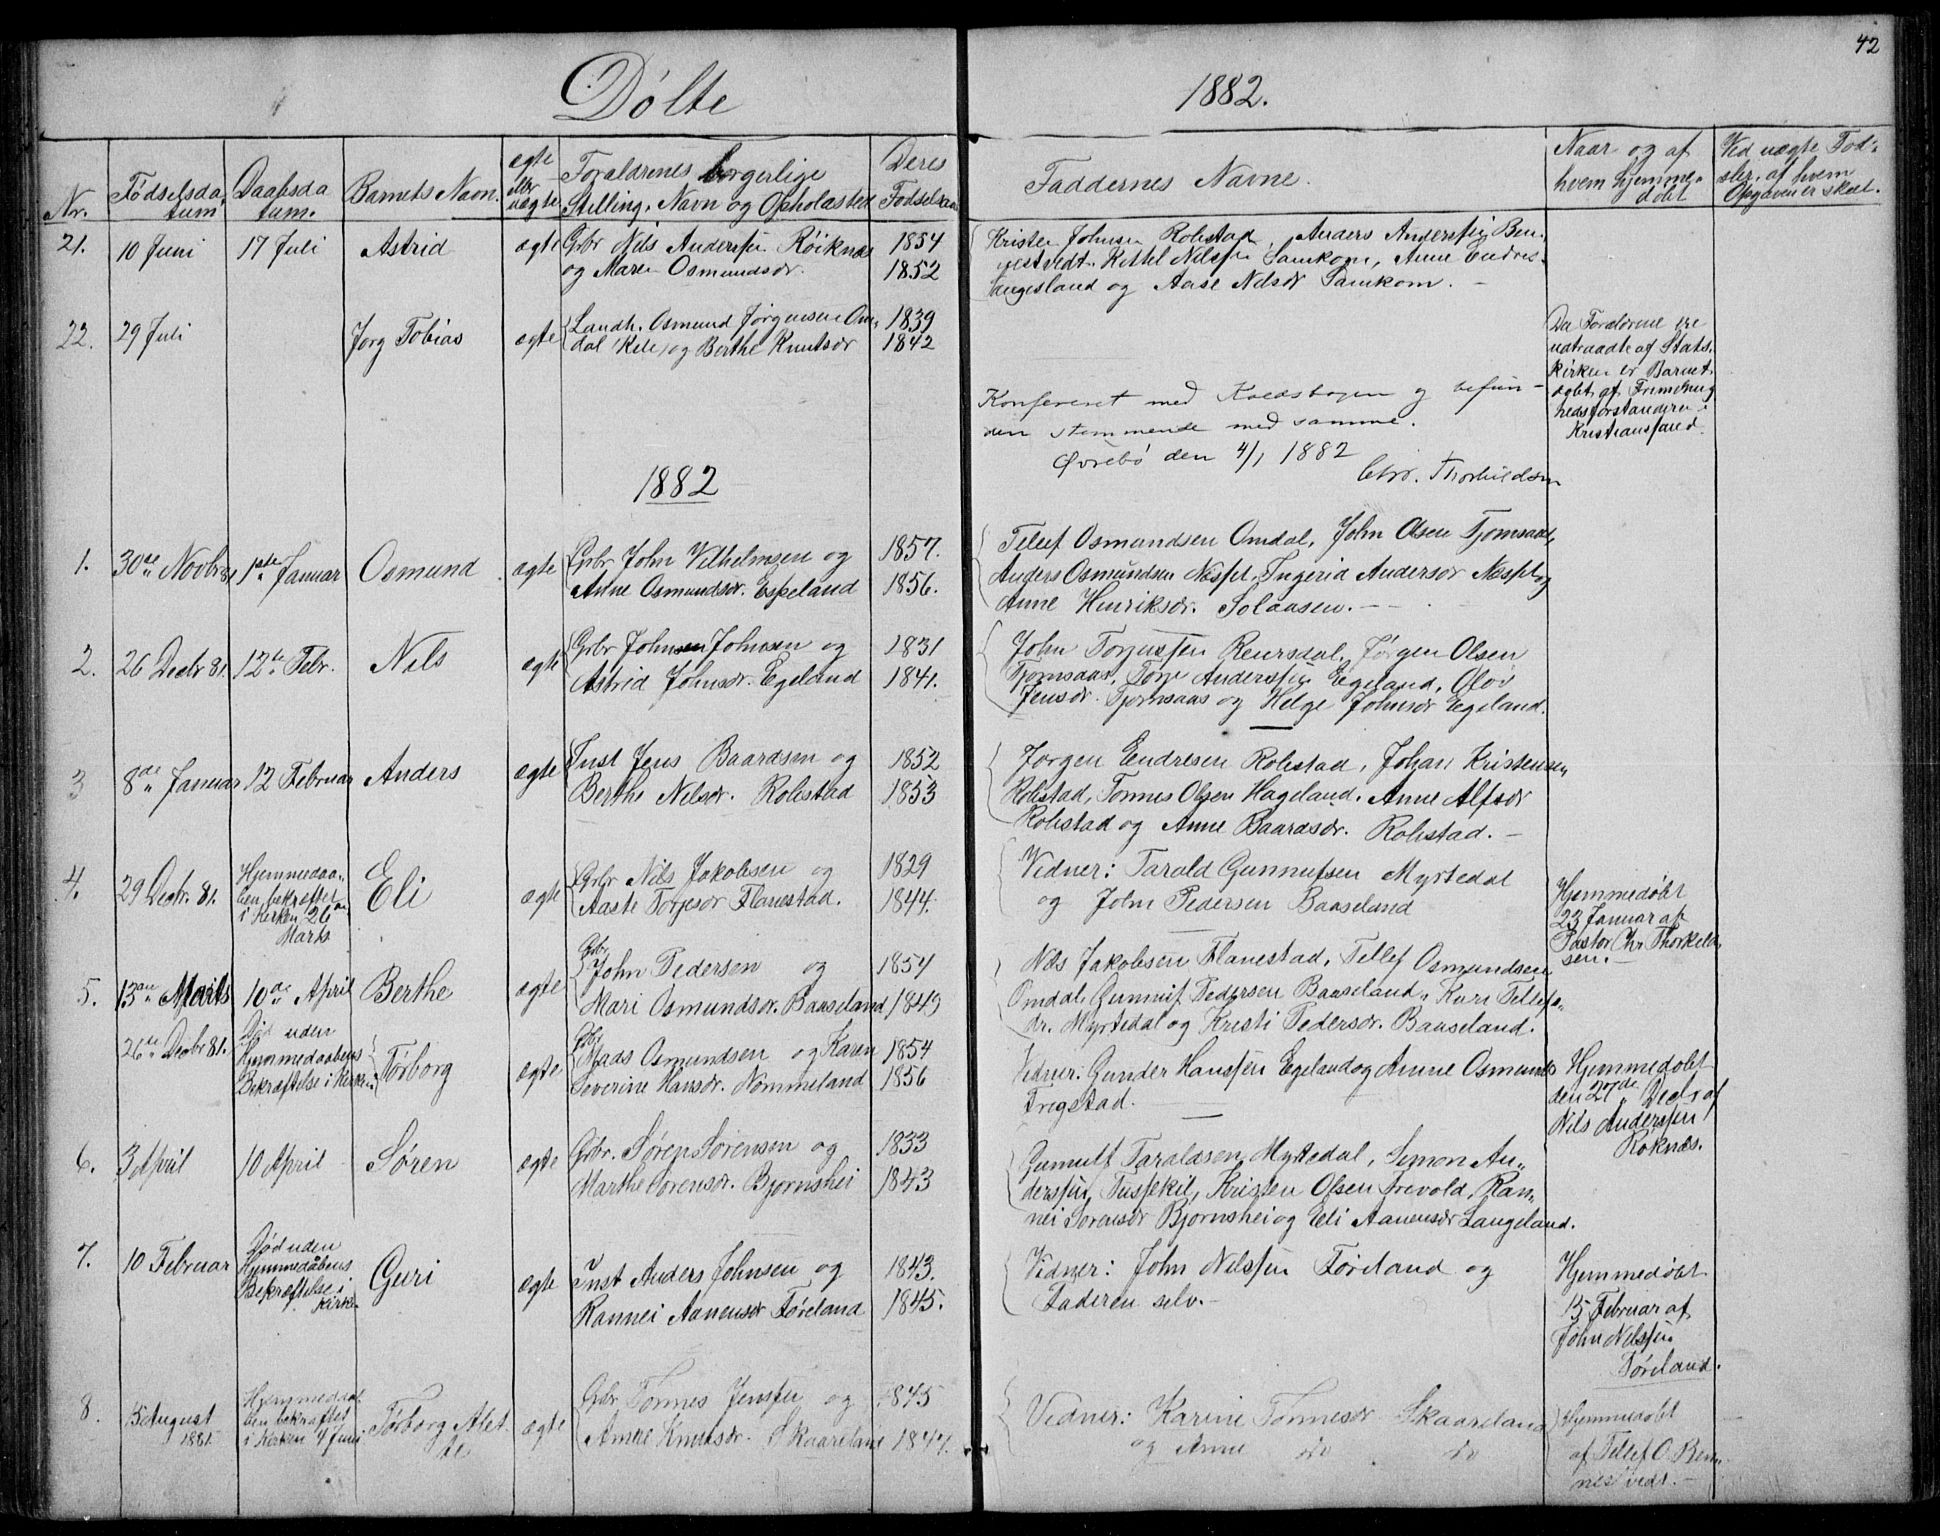 42
Døbte 1882.
Nr. Fødselsdatum Daabsdatum. Barnets Navn. ægte eller uægte Forældrenes borgerlige Stilling, Navn og Opholdsted Deres Fødselsaar Faddernes Navne. Naar og af hvem hjemmedøbt Ved uægte Fødsler, af hvem Opgaven er skeet.
21. 10 Juni 17 Juli Astrid ægte Gbr Nils Anderssen Røiknæs 1854
og Maren Osmundsdr. 1852
Kristen Johnsen Robstad, Anders Anderssen Ben-
nestvedt, Kittel Nilssen Samkom, Anne Endres
Langeland og Aase Nilsdr Samkom. -
22. 29 Juli Jorg Tobias ægte Landh. Osmund Jørgensen Om- 1839
dal og Berthe Knutsdr 1842
Da Forældrene ere
udtraadte af Stats-
kirken er Barnet
døbt af Frimenig
hedsforstanderen i
Kristiansand.
Konfereret med Kladsbogen og befun-
den stemmende med samme.
Øvrebø den 4/1 1882
Chr. Thorkildsen
1882
1. 30te Novbr 81 1ste Januar Osmund ægte Gbr John Vilhelmsen og 1857.
Anne Osmundsdr. Espeland 1856.
Tellef Osmundsen Omdal, John Olsen Tjomsaas,
Anders Osmundsen Næsset, Ingerid Andersdr Næsset og
Anne Henriksdr. Solaasen. -
2. 26 Decbr 81. 12te Febr. Nils ægte Gbr Johnsen Johnsen og 1831
Astrid Johnsdr. Egeland 1841.
John Torjussen Reiersdal, Jørgen Olsen
Tjomsaas, Torje Anderssen Egeland, Olov
Jensdr. Tjomsaas og Helge Johnsdr Egeland.
3 8de Januar 12 Februar Anders ægte Inst Jens Baardsen og 1852
Berthe Nilsdr. Robstad 1853
Jørgen Endresen Robstad, Johan Kristensen
Robstad, Tønnes Olsen Hageland, Anne Alfsdr
Robstad og Anne Baardsdr. Robstad. -
4. 29 Decbr. 81. Hjemmedaa-
ben bekræftet
i Kirken 26
Marts Eli ægte Gbr Nils Jakobsen og 1829
Aaste Torjesdr Flanestad. 1844.
Vidner: Tarald Gunnufsen Myrtedal
og John Pedersen Baaseland
Hjemmedøbt
23 Januar af
Pastor Chr Thorkild-
sen. -
5. 13de Marts 10de April Berthe ægte Gbr John Pedersen og 1857
Mari Osmundsdr. Baaseland 1849
Nils Jakobsen Flanestad, Tellef Osmundsen
Omdal, Gunnuf Pedersen Baaseland, Kari Tellefs-
dr. Myrtedal og Kristi Pedersdr. Baaseland.
26de Decbr 81. Død uden
Hjemmedaabens
Bekræftelse i Kirken Torborg ægte Gbr Mads Osmundsen og Karen 1854
Severine Hansdr. Nommeland 1856
Vidner: Gunder Hanssen Egeland og Anne Osmundsdr
Tregstad.
Hjemmedøbt
den 27de Decbr af
Nils Anderssen
Roknæs.
6. 3 April 10 April Søren ægte Gbr. Søren Sørensen og 1833
Marthe Sorensdr. Bjørnshei 1843
Gunnulf Taraldsen Myrtedal, Simon An-
derssen Tussekil, Kristen Olsen Frevold, Ran-
nei Sorensdr Bjornshei og Eli Aanensdr Langeland.
7. 10 Februar Død uden
Hjemmedåbens
Bekræftelse i
Kirken Guri ægte Inst Anders Johnsen og 1843.
Rannei Aanensdr Føreland 1845.
Vidner: John Nilssen Føreland og
Faderen selv. -
Hjemmedøbt
15 Februar af
John Nilssen
Føreland.
8. 15 August
1881. Hjemmedaa-
ben bekræftet
i Kirken 4 Juni Torborg Alet-
te ægte Gbr Tønnes Jenssen og 1845
Anne Knutsdr. Skaareland 1847.
Vidner: Karine Tønnesdr Skaareland
og Anne do do
Hjemmedøbt
af Tellef O. Ben-
nestvedt. -